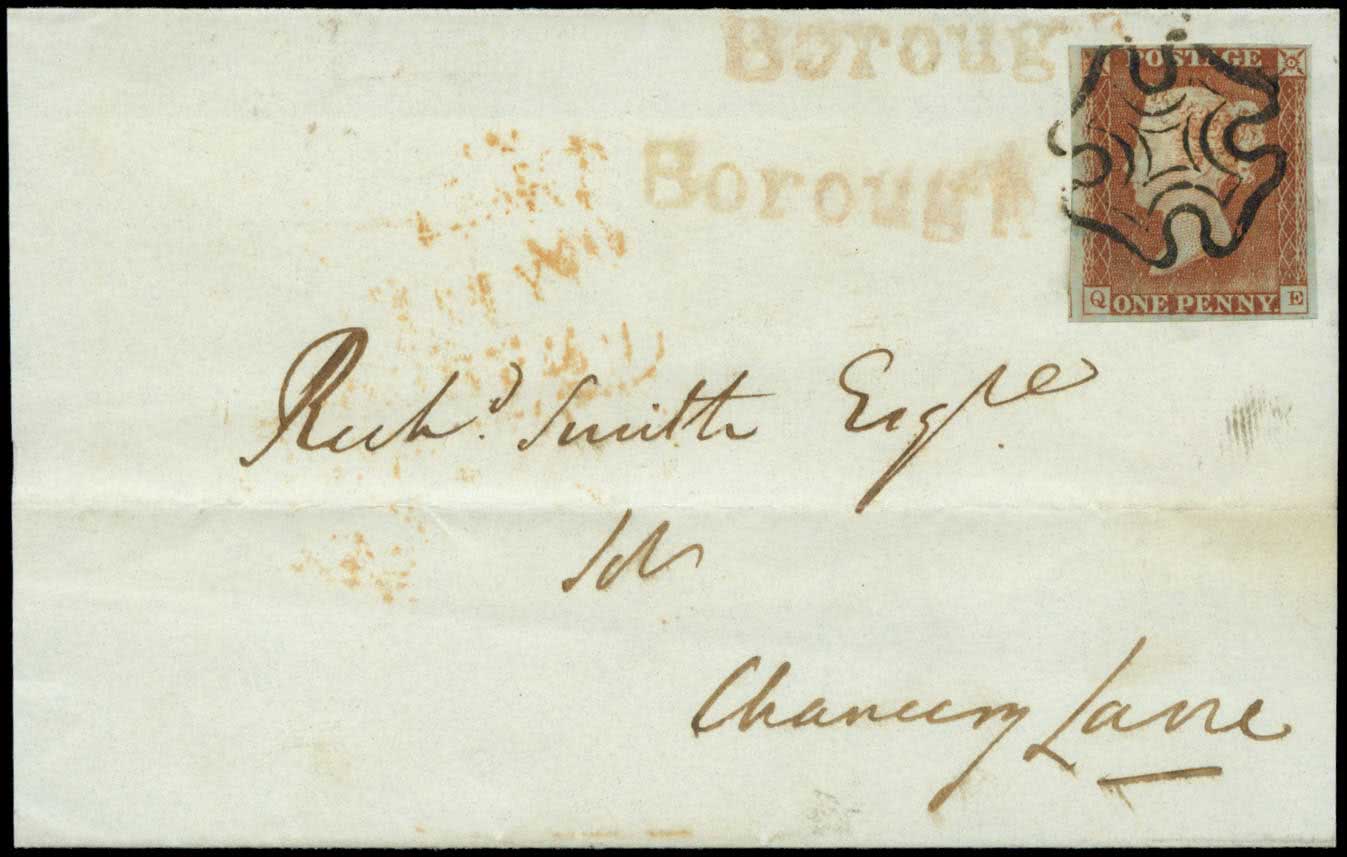 Borough
Borough
POSTAGE
Q ONE PENNY. E
Richd. Smith Esqre
Chancery Lane